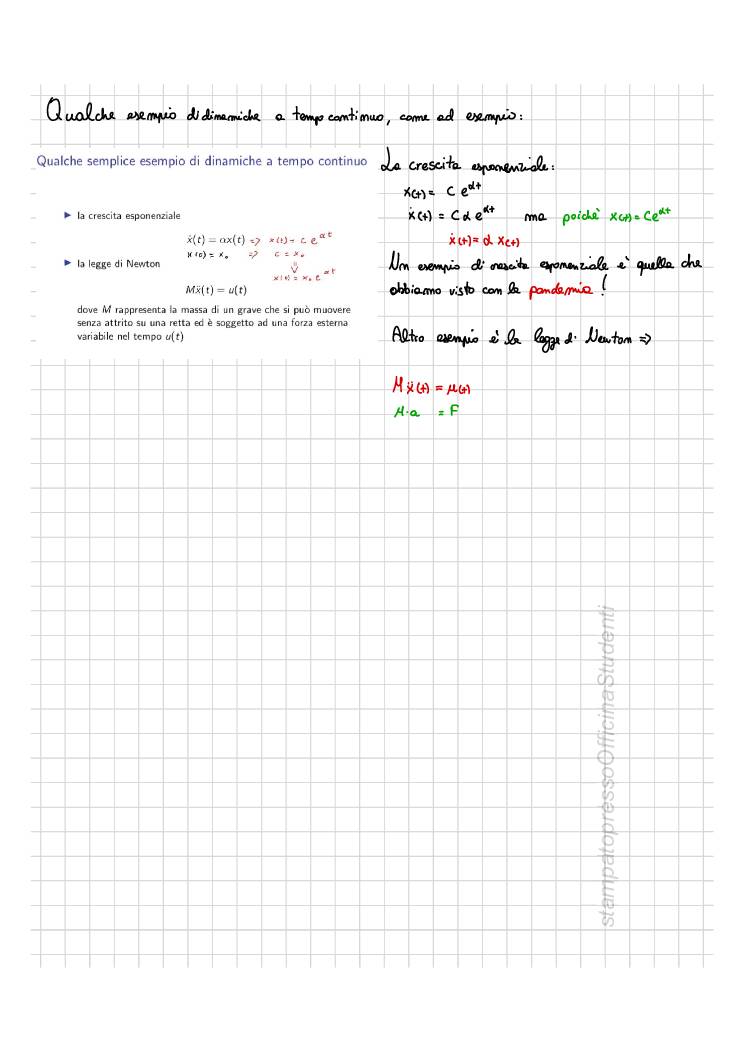 Qualche esempio di dinamiche a tempo continuo, come ad esempio:
Qualche semplice esempio di dinamiche a tempo continuo
▶ la crescita esponenziale
ẋ(t) = αx(t) => x(t) = c e^αt
x(0) = x₀ => c = x₀
⇓
x(t) = x₀ e^αt
▶ la legge di Newton
Mẍ(t) = u(t)
dove M rappresenta la massa di un grave che si può muovere
senza attrito su una retta ed è soggetto ad una forza esterna
variabile nel tempo u(t)
La crescita esponenziale:
x(t) = C e^αt
ẋ(t) = C α e^αt ma poichè x(t) = Ce^αt
ẋ(t) = α x(t)
Un esempio di crescita esponenziale è quella che
abbiamo visto con la pandemia!
Altro esempio è la legge di Newton =>
M ẍ(t) = μ(t)
M·a = F
stampatopressoOfficinaStudenti